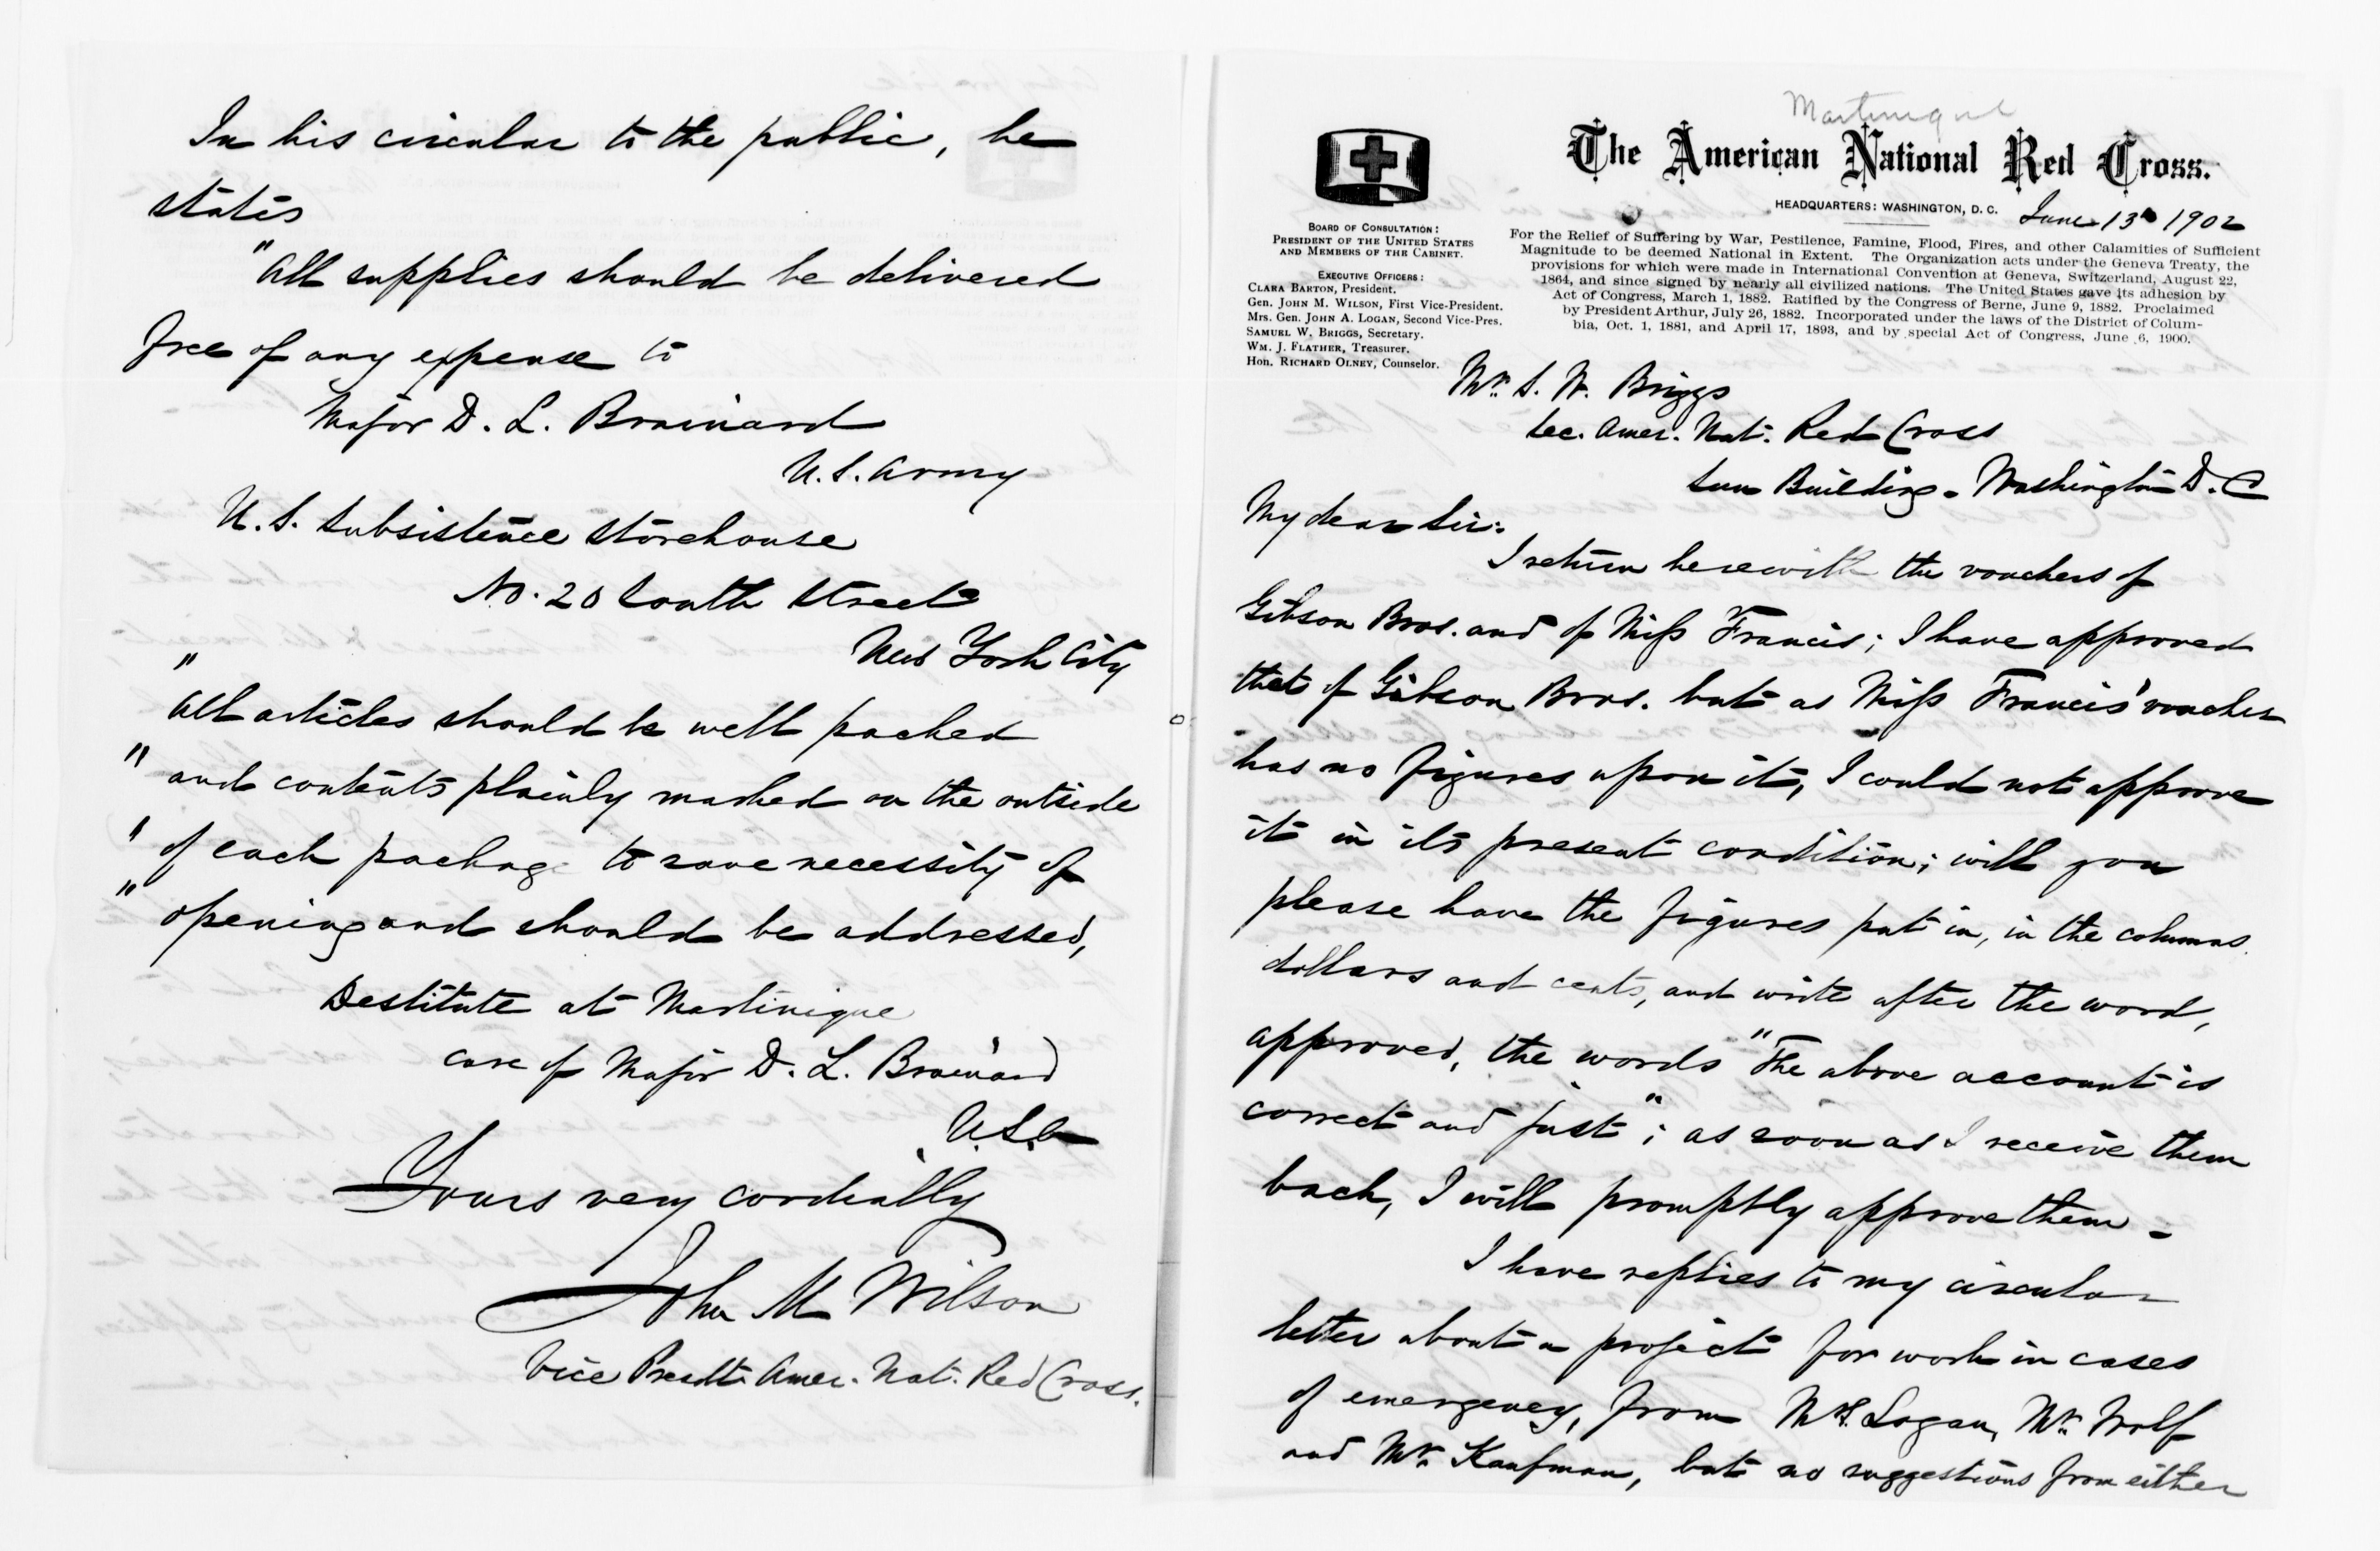 In his circular to the public, he
states
"All supplies should be delivered
free of any expense to
Major D. L. Brainard
U. S. Army
U. S. Subsistence Storehouse
No. 20 South Street
New York City
"All articles should be well packed
" and contents plainly marked on the outside
" of each package to save necessity of
" opening and should be addressed,
Destitute at Martinique
care of Major D. L. Brainard
U.S.A.
Yours very cordially
John M Wilson
Vice Presdt. Amer. Nat. Red Cross.
Martinique
The American National Red Cross.
HEADQUARTERS: WASHINGTON, D. C.
June 13th 1902
BOARD OF CONSULTATION:
PRESIDENT OF THE UNITED STATES
AND MEMBERS OF THE CABINET.
EXECUTIVE OFFICERS:
CLARA BARTON, President.
Gen. JOHN M. WILSON, First Vice-President.
Mrs. Gen. JOHN A. LOGAN, Second Vice-Pres.
SAMUEL W. BRIGGS, Secretary.
WM. J. FLATHER, Treasurer.
Hon. RICHARD OLNEY, Counselor.
For the Relief of Suffering by War, Pestilence, Famine, Flood, Fires, and other Calamities of Sufficient
Magnitude to be deemed National in Extent. The Organization acts under the Geneva Treaty, the
provisions for which were made in International Convention at Geneva, Switzerland, August 22,
1864, and since signed by nearly all civilized nations. The United States gave its adhesion by
Act of Congress, March 1, 1882. Ratified by the Congress of Berne, June 9, 1882. Proclaimed
by President Arthur, July 26, 1882. Incorporated under the laws of the District of Colum-
bia, Oct. 1, 1881, and April 17, 1893, and by special Act of Congress, June 6, 1900.
Mr. S. W. Briggs
Sec. Amer. Nat. Red Cross
Sun Building - Washington D. C
My dear Sir:
I return herewith the vouchers of
Gibson Bros. and of Miss Francis; I have approved
that of Gibson Bros. but as Miss Francis' voucher
has no figures upon it, I could not approve
it in its present condition; will you
please have the figures put in, in the columns
dollars and cents, and write after the word,
approved, the words "The above account is
correct and just"; as soon as I receive them
back, I will promptly approve them -
I have replies to my circular
letter about a project for work in cases
of emergency, from Mrs. Logan, Mr. Wolf
and Mr. Kaufman, but no suggestions from either